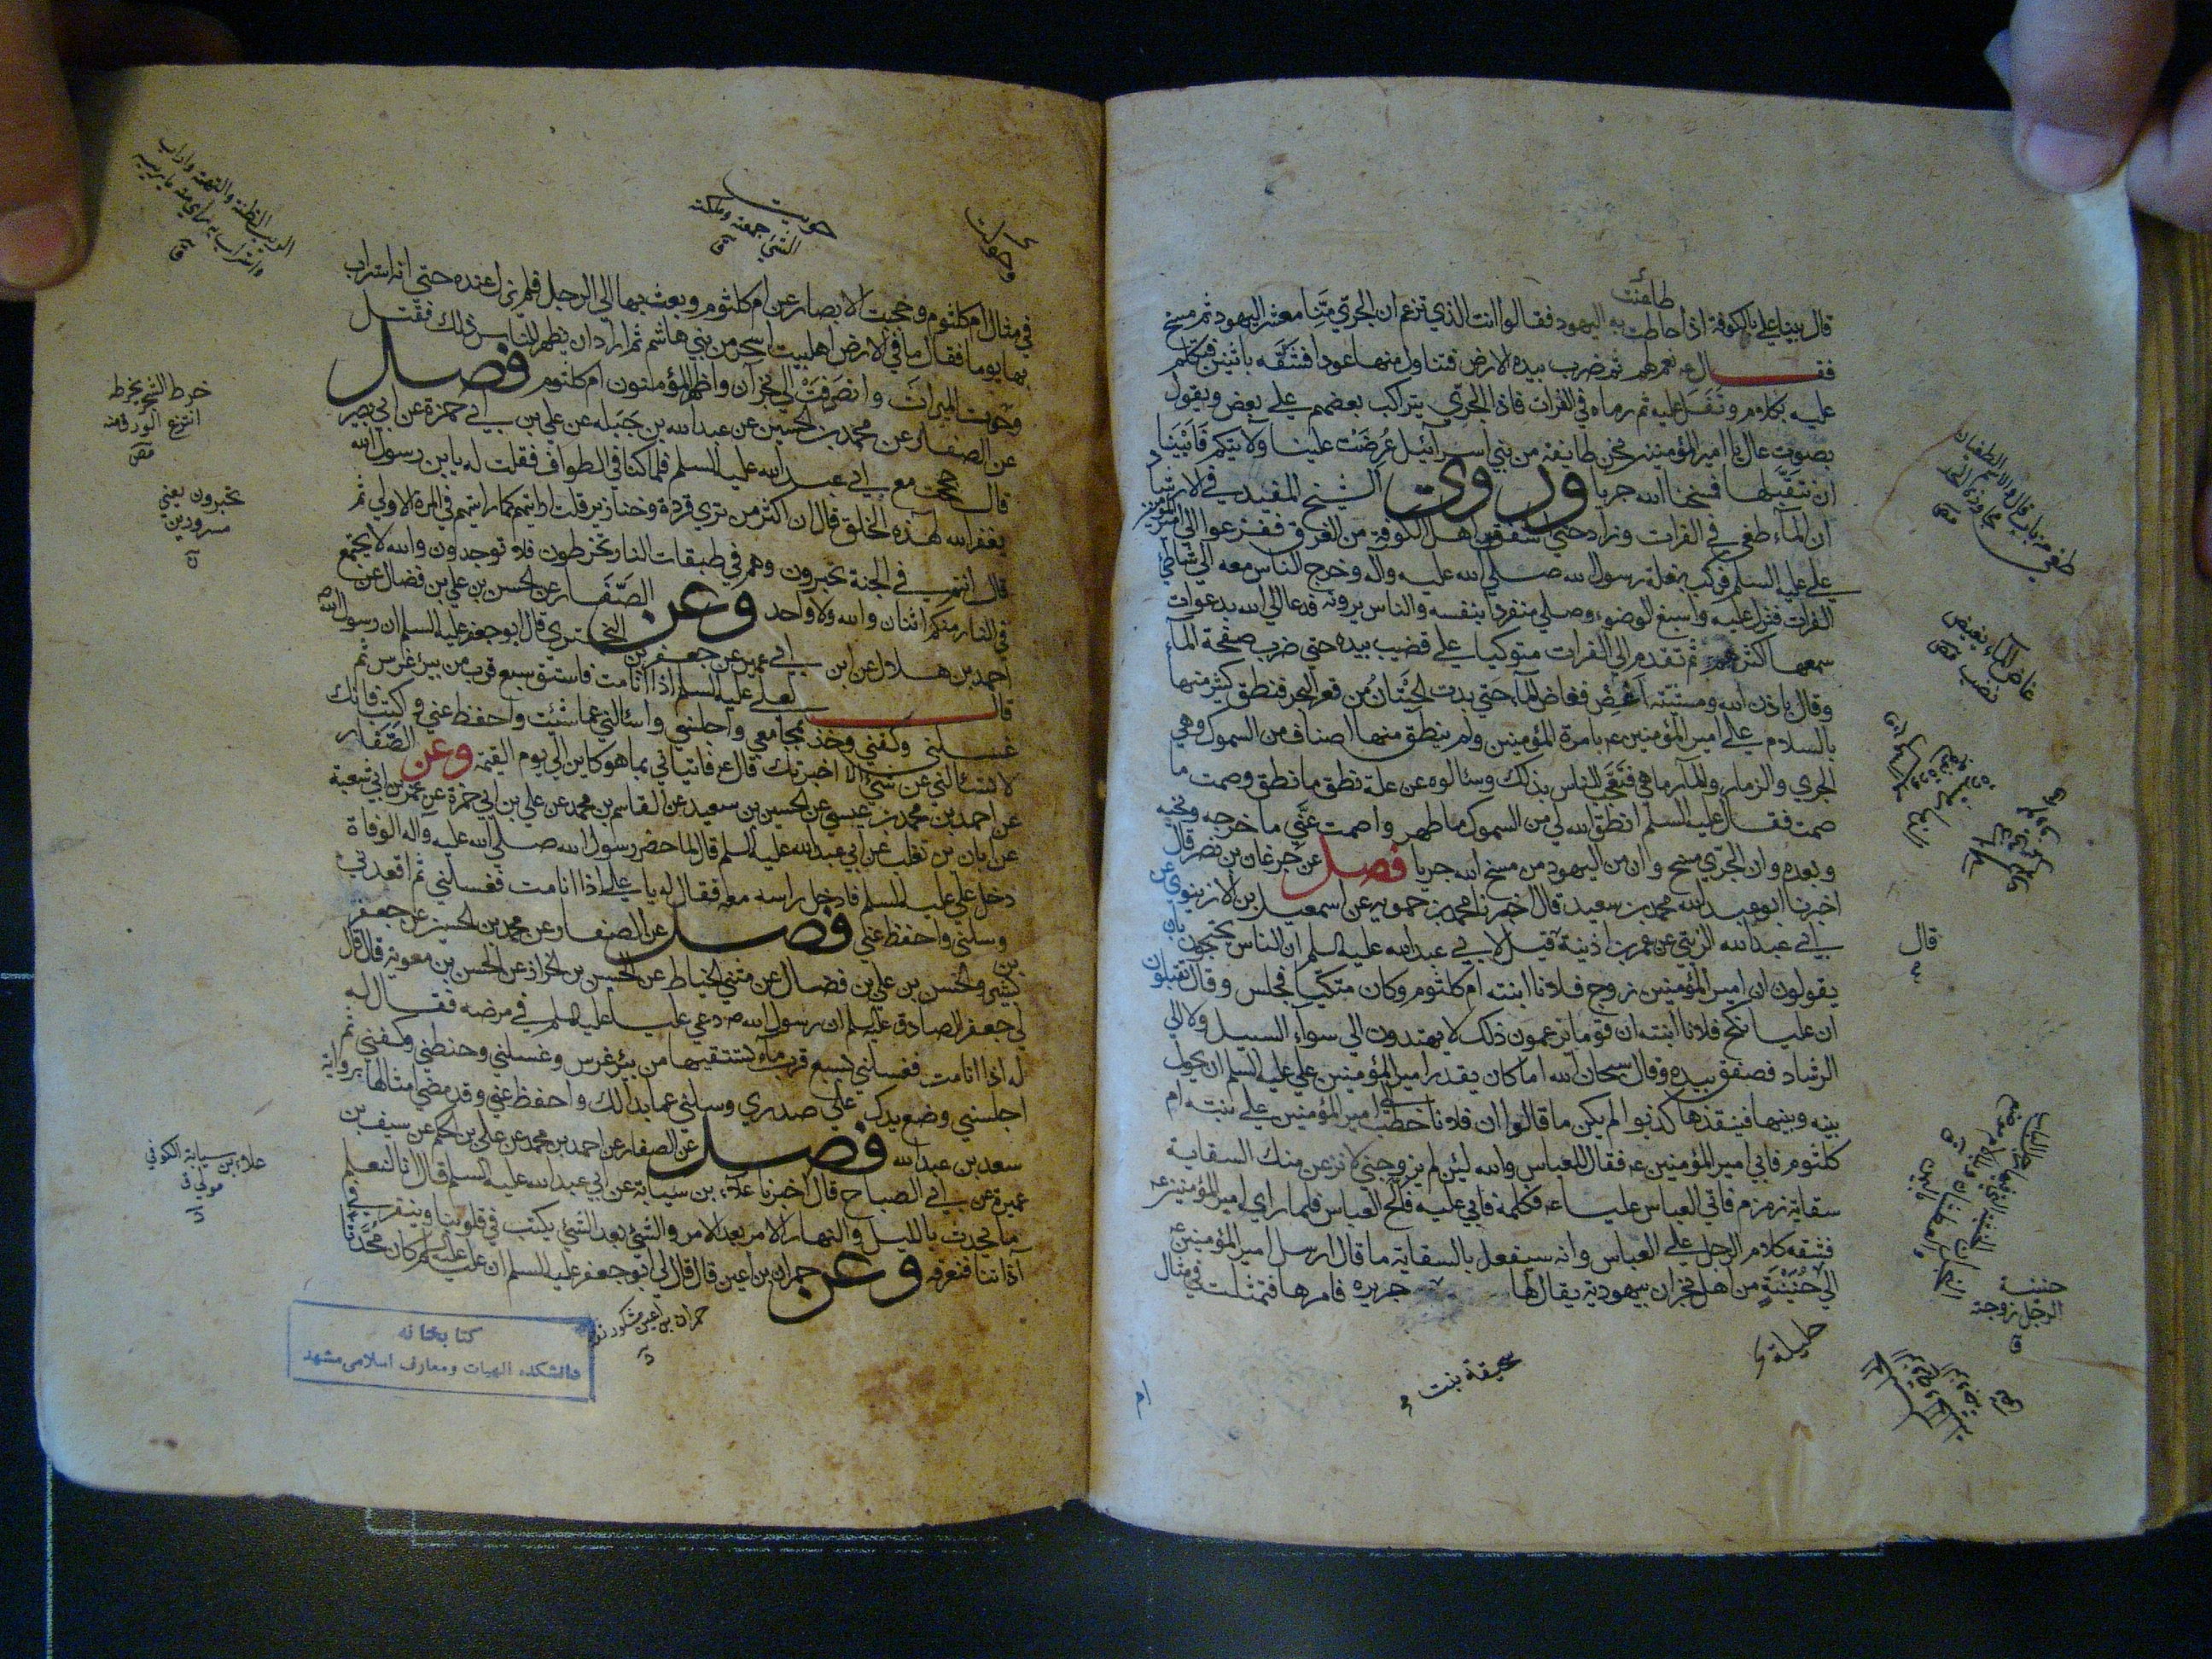 طائفت
قال بينا علي بالكوفة اذا احاطت به اليهود فقالوا انت الذي تزعم ان الجري منا معشر اليهود ثم مسخ
فقال عه نعم هم ثم ضرب بيده الارض فتناول منها عودا فشقه باثنين فتكلم
عليه بكلام وتفل عليه ثم رماه في الفرات فاذا الجري يتراكب بعضهم علي بعض ويقول
بصوت عال يا امير المؤمنين نحن طايفة من بني اسرائيل عرضت علينا ولايتكم فابينا
ان نتقبلها فمسخنا الله جريا وروى الشيخ المفيد في الارشاد
ان الماء طغى في الفرات وزاد حتى اشفق اهل الكوفة من الغرق ففزعوا الي امير المؤمنين
علي عليه السلم فركب بغلة رسول الله صلي الله عليه وآله وخرج الناس معه الي شاطئ
الفرات فنزل عليه واسبغ الوضوء وصلي منفردا بنفسه والناس يرونه فدعا الي الله بدعوات
سمعها اكثرهم ثم تقدم الي الفرات متوكيا علي قضيب بيده حتي ضرب صفحة الماء
وقال باذن الله ومشيته اغض فغاض الماء حتي بدت الحيتان من قعر البحر فنطق كثير منها
بالسلام علي امير المؤمنين عه بامرة المؤمنين ولم ينطق منها اصناف من السموك وهي
الجري والزمار والمارماهي فتعجب الناس بذلك وسئالوه عن علة نطق ما نطق وصمت ما
صمت فقال عليه السلم انطق الله لي من السموك ما طهر واصمت عني ما خرجه ونجسه
وبعده وان الجري مسخ وان من اليهود من مسخ الله جريا فصل عن جرعان بن نصر قال
اخبرنا ابو عبد الله محمد بن سعيد قال اخبرنا محمد بن حمويه عن اسمعيل بن الازينوي عن
ابي عبد الله الزبتي عن عمر بن اذينة قيل لابي عبد الله عليه السلم ان الناس يحتجون بان
يقولون ان امير المؤمنين زوج فلانا ابنته ام كلثوم وكان متكيا فجلس وقال تقبلون
ان عليا نكح فلانا ابنته ان قوما يزعمون ذلك لا يهتدون الي سواء السبيل ولا الي
الرشاد فصفق بيده وقال سبحان الله اما كان يقدر امير المؤمنين علي عليه السلم ان يحول
بينه وبينها فينقذها كذبوا لم يكن ما قالوا ان فلانا خطب الي امير المؤمنين علي بنته ام
كلثوم فابي امير المؤمنين عه فقال للعباس والله لئن لم يزوجني لانزعن منك السقاية
سقاية زمزم فاتي العباس عليا عه فكلمه فابي عليه فالح العباس فلما راي امير المؤمنين عه
مشقة كلام الرجل علي العباس وانه سيفعل بالسقاية ما قال ارسل امير المؤمنين عه
الي جنية من اهل نجران يهودية يقال لها جريره فامرها فتمثلت في مثال
طغى
غاض الماء يغيض
نضب
قال
الرجل زوجته
سحيقة بنت
في مثال ام كلثوم وحجبت الابصار عن ام كلثوم وبعث بها الي الرجل فلم تزل عنده حتي انه استراب
بها يوما فقال ما في الارض اهل بيت اسحر من بني هاشم ثم اراد ان يظهر للناس ذلك فقتل
وحوت الميراث وانصرفت الي نجران واظهر المؤمنون ام كلثوم فصل
عن الصفار عن محمد بن الحسين عن عبد الله بن جبله عن علي بن ابي حمزة عن ابي بصير
قال حججت مع ابي عبد الله عليه السلم فلما كنا في الطواف فقلت له يا بن رسول الله
يغفر الله لهذه الخلق قال ان اكثر من تري قردة وخنازير قلت اريتهم كما رايتهم في المرة الاولي ثم
قال انتم في الجنة تحبرون وهم في طبقات النار تخرطون فلا توجدون والله لا يجتمع
في النار منكم اثنان والله ولا واحد وعن الصفار عن الحسن بن علي بن فضال عن
احمد بن هلال عن ابن ابي عمير عن جعفر بن البختري قال ابو جعفر عليه السلم ان رسول الله
قال لعلي عليه السلم اذا انا مت فاستق سبع قرب من بئر غرس ثم
غسلني وكفني وخذ بمجامعي واجلسني واسئالني عما شئت واحفظ عني وكتب فانك
لا تسئالني عن شئ الا اخبرتك قال عه فانباني بما هو كاين الي يوم القيمة وعن الصفار
عن احمد بن محمد بن عيسي عن الحسين بن سعيد عن القاسم بن محمد عن علي بن ابي حمزة عن عمر بن ابي شعبة
عن ابان بن تغلب عن ابي عبد الله عليه السلم قال لما حضر رسول الله صلي الله عليه وآله الوفاة
دخل علي عليه السلم فادخل راسه معه فقال له يا علي اذا انا مت فغسلني ثم اقعدني
وسلني واحفظ عني فصل عن الصفار عن محمد بن الحسين عن جعفر
بن بشير والحسن بن علي بن فضال عن مثني الخياط عن الحسين بن الخراز عن الحسن بن معوية قال قال
لي جعفر الصادق عليه السلم ان رسول الله صه دعي عليا عليه السلم في مرضه فقال له
له اذا انا مت فغسلني بسبع قرب ماء تستقيها من بئر غرس وغسلني وحنطني وكفني ثم
اجلسني وضع يدك علي صدري وسلني عما بدا لك واحفظ عني وقد مضي امثالها برواية
سعد بن عبد الله فصل عن الصفار عن احمد بن محمد عن علي بن الحكم عن سيف بن
عميرة عن ابي الصباح قال اخبرنا علاء بن سيابة عن ابي عبد الله عليه السلم قال انا لنعلم
ما يحدث بالليل والنهار الامر بعد الامر والشئ بعد الشئ يكتب في قلوبنا وينقر في
آذاننا فنعرفه وعن حمران بن اعين قال قال لي ابو جعفر عليه السلم ان عليا عليه السلم كان محدثا
حويت
الشئ جمعته وملكته
الريب الظنة والتهمة
خرط الشجر يخرط
انتزع الورق منه
تحبرون يعني
مسرورين
علاء بن سيابة الكوفي
مولي
حمران بن اعين مشكور
كتابخانه
دانشكده الهيات ومعارف اسلامى مشهد